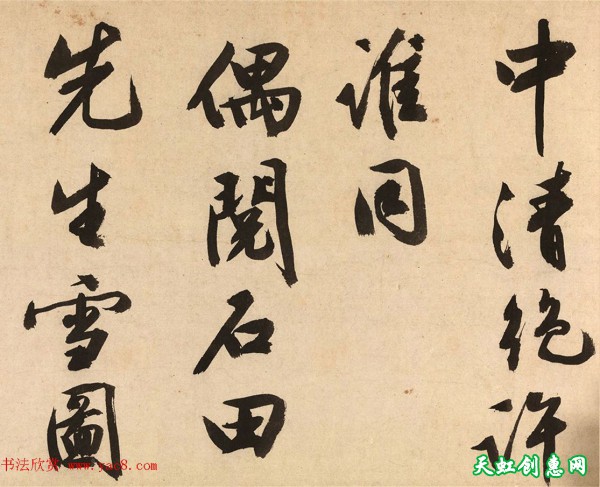 中清絶許
誰同
偶閱石田
先生雪圖
书法欣赏 www.yac8.com
天虹创惠网